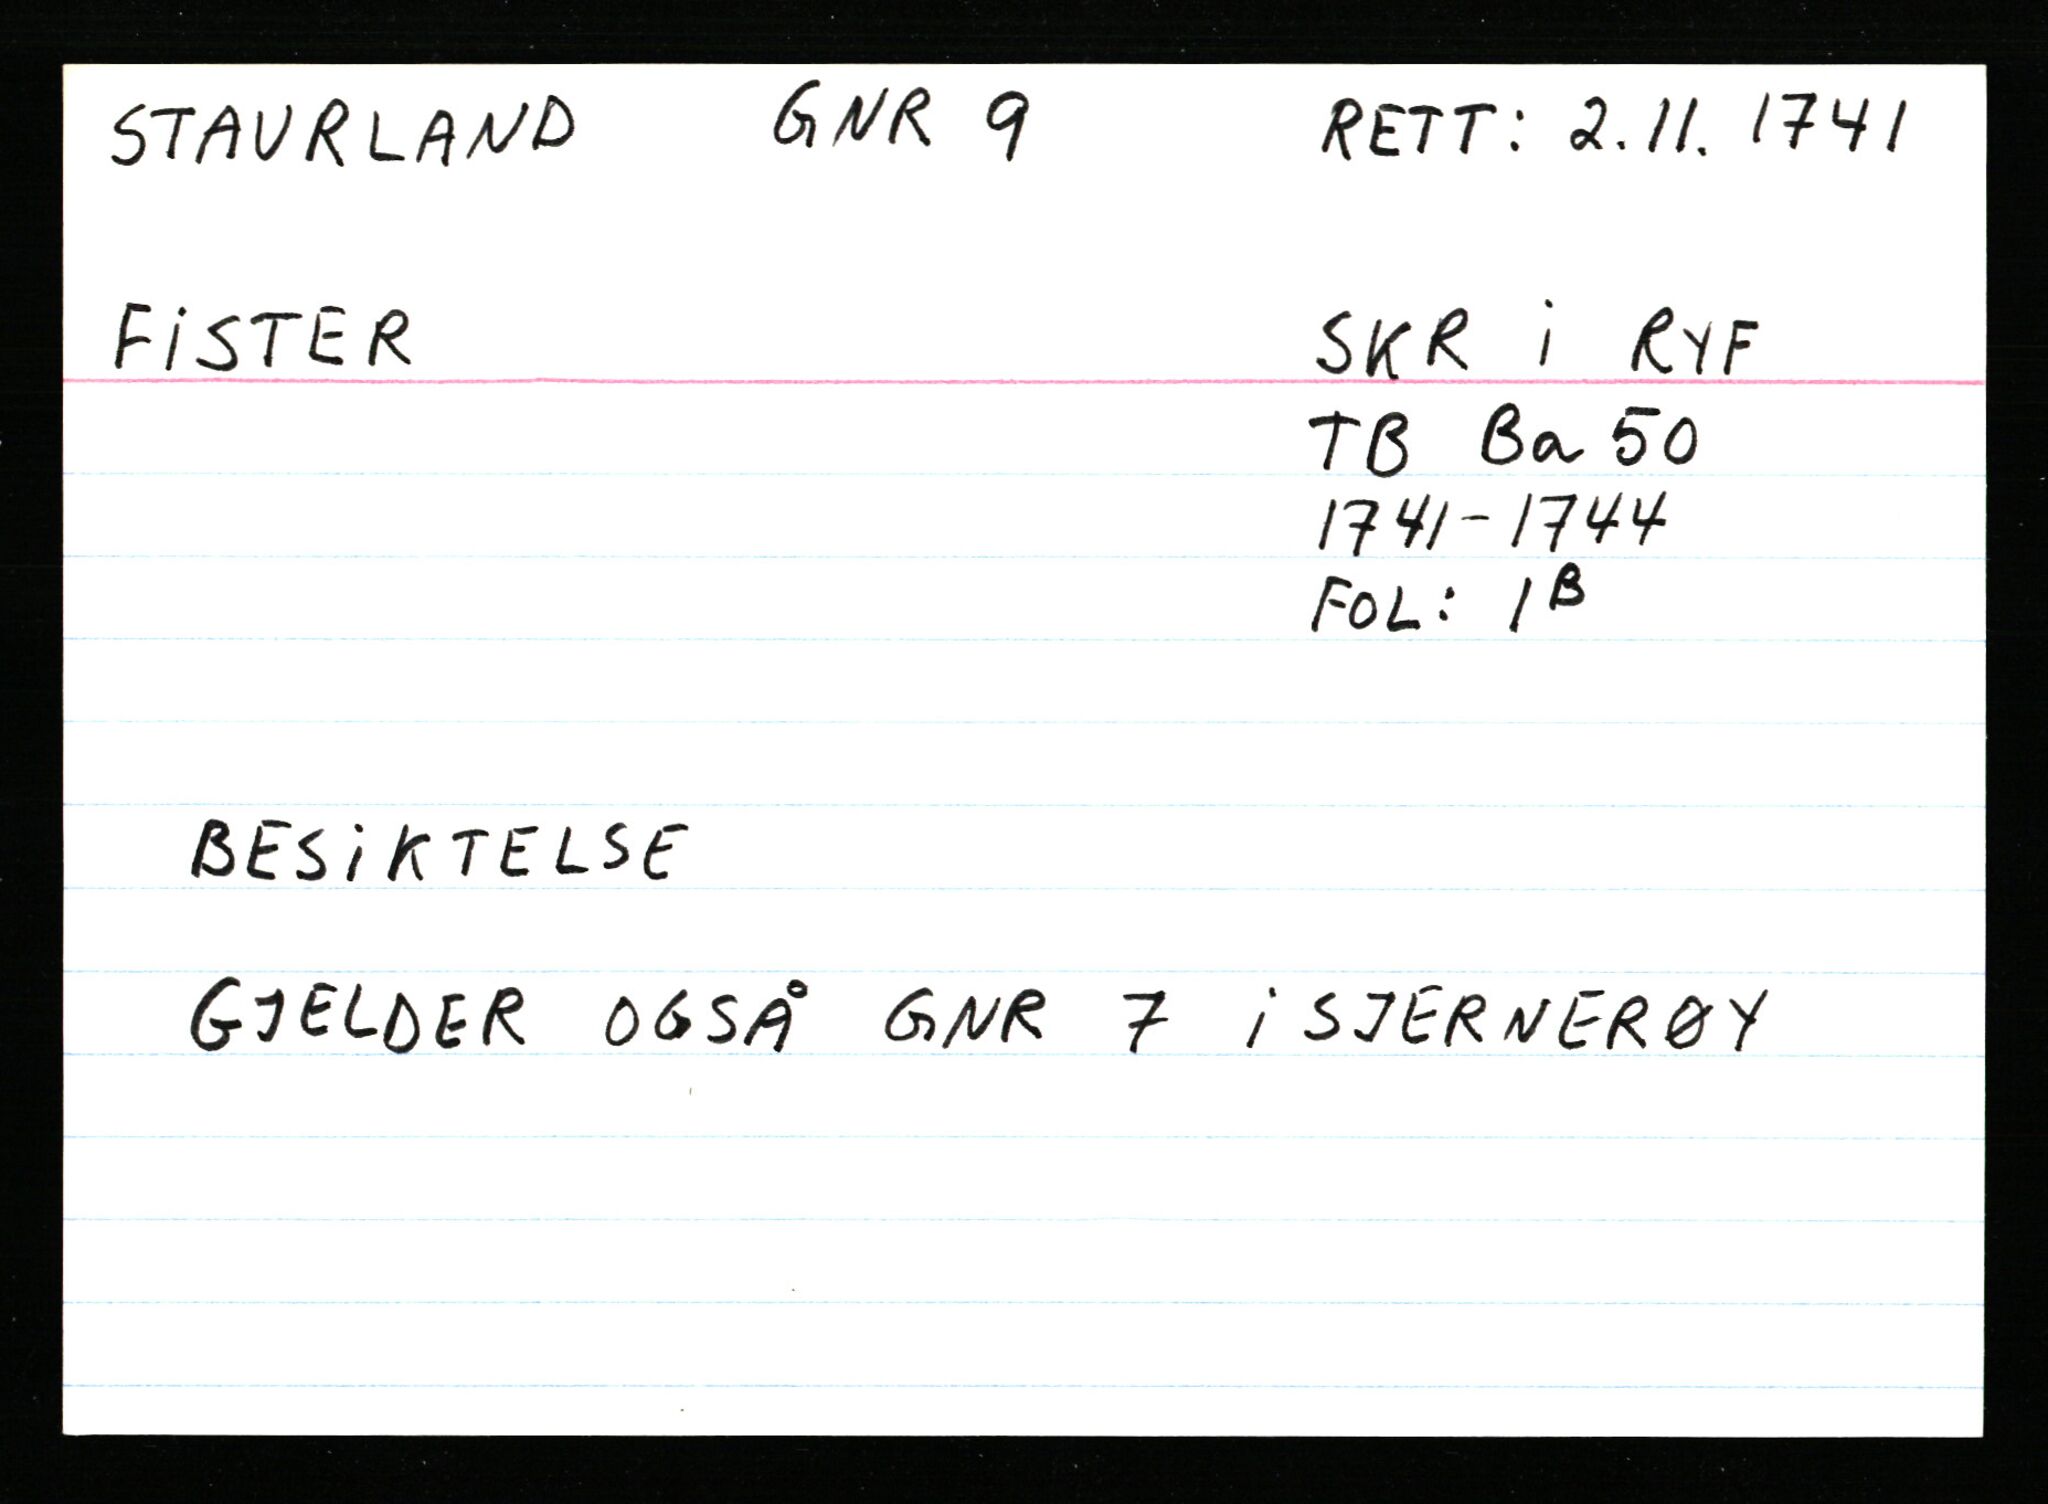 STAURLAND GNR 9 RETT: 2.11.1741
FiSTER SKR i RYF
TB Ba 50
1741-1744
FOL: 1B
BESiKTELSE
GJELDER OGSÅ GNR 7 i SJERNERØY